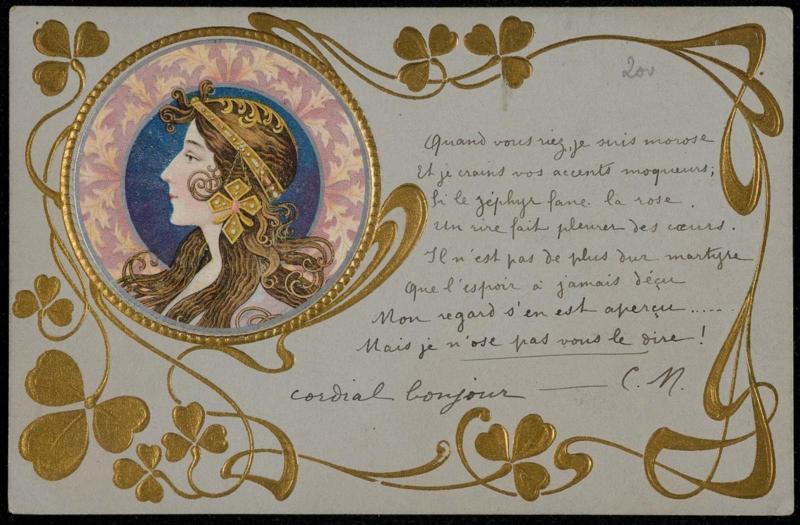 20v
Quand vous riez, je suis morose
Et je crains vos accents moqueurs;
Si le zéphyr fane la rose,
Un rire fait pleurer des cœurs.
Il n'est pas de plus dur martyre
Que l'espoir à jamais déçu
Mon regard s'en est aperçu.....
Mais je n'ose pas vous le dire!
cordial bonjour — C. N.